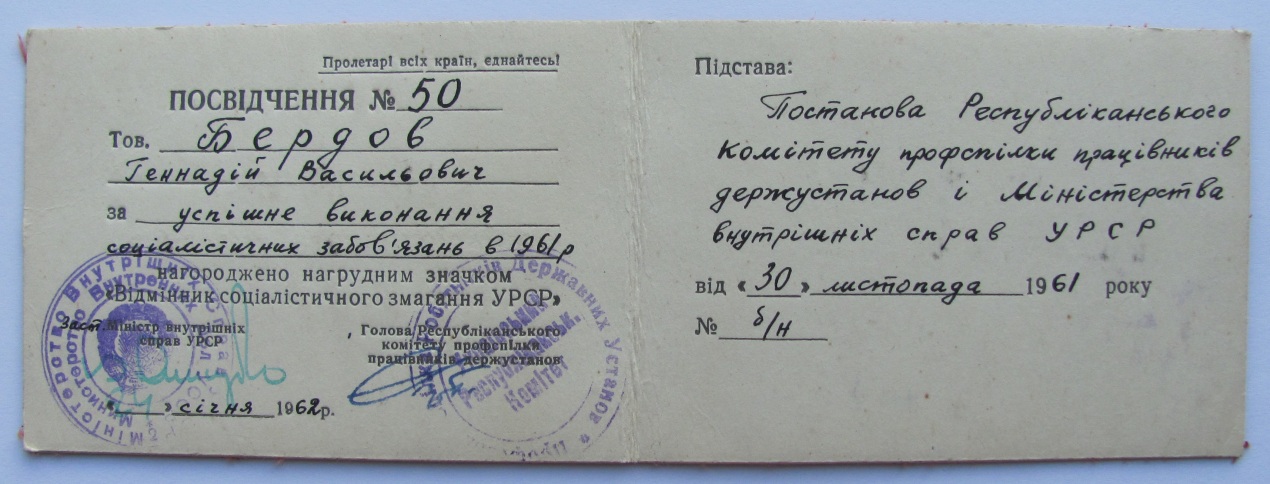 Пролетарі всіх країн, єднайтесь!
ПОСВІДЧЕННЯ № 50
Тов. Бердов
Геннадій Васильович
за успішне виконання
соціалістичних забов'язань в 1961 р
нагороджено нагрудним значком
«Відмінник соціалістичного змагання УРСР»
Заст. Міністр внутрішніх
справ УРСР
Голова Республіканського
комітету профспілки
працівників держустанов
« » січня 1962 р.
Міністерство Внутрішніх Справ
Министерство Внутренних
Державних Установ
Республіканськ.
Комітет
Підстава:
Постанова Республіканського
Комітету профспілки працівників
держустанов і Міністерства
внутрішніх справ УРСР
від « 30 » листопада 1961 року
№ б/н